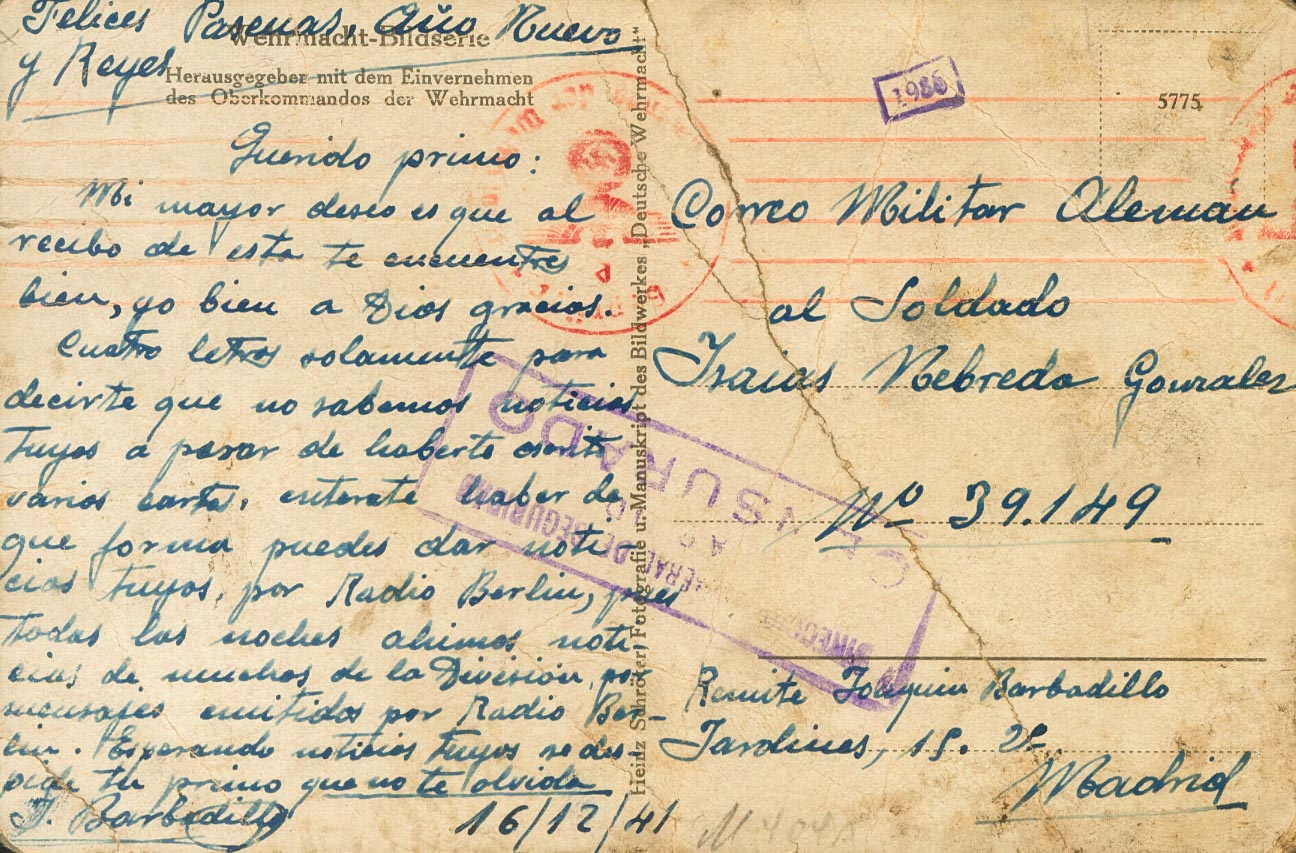 Felices Pascuas, Año Nuevo
y Reyes
Wehrmacht-Bildserie
Herausgegeben mit dem Einvernehmen
des Oberkommandos der Wehrmacht
Querido primo:
Mi mayor deseo es que al
recibo de esta te encuentres
bien, yo bien a Dios gracias.
Cuatro letras solamente para
decirte que no sabemos noticias
tuyas a pesar de haberte escrito
varias cartas, enterate haber de
que forma puedes dar noti-
cias tuyas, por Radio Berlin, pues
todas las noches ahimos noti-
cias de muchos de la División, por
mensajes emitidos por Radio Ber-
lin. Esperando noticias tuyas se des-
pide tu primo que no te olvida
J. Barbadillo
16/12/41
Heinz Schröter, Fotografie u. Manuskript des Bildwerkes „Deutsche Wehrmacht“
1986
5775
Correo Militar Aleman
al Soldado
Isaias Nebreda Gonzalez
Nº 39.149
DIRECCION GENERAL DE SEGURIDAD
CENSURADO
Remite Joaquin Barbadillo
Jardines, 15. 2º
Madrid